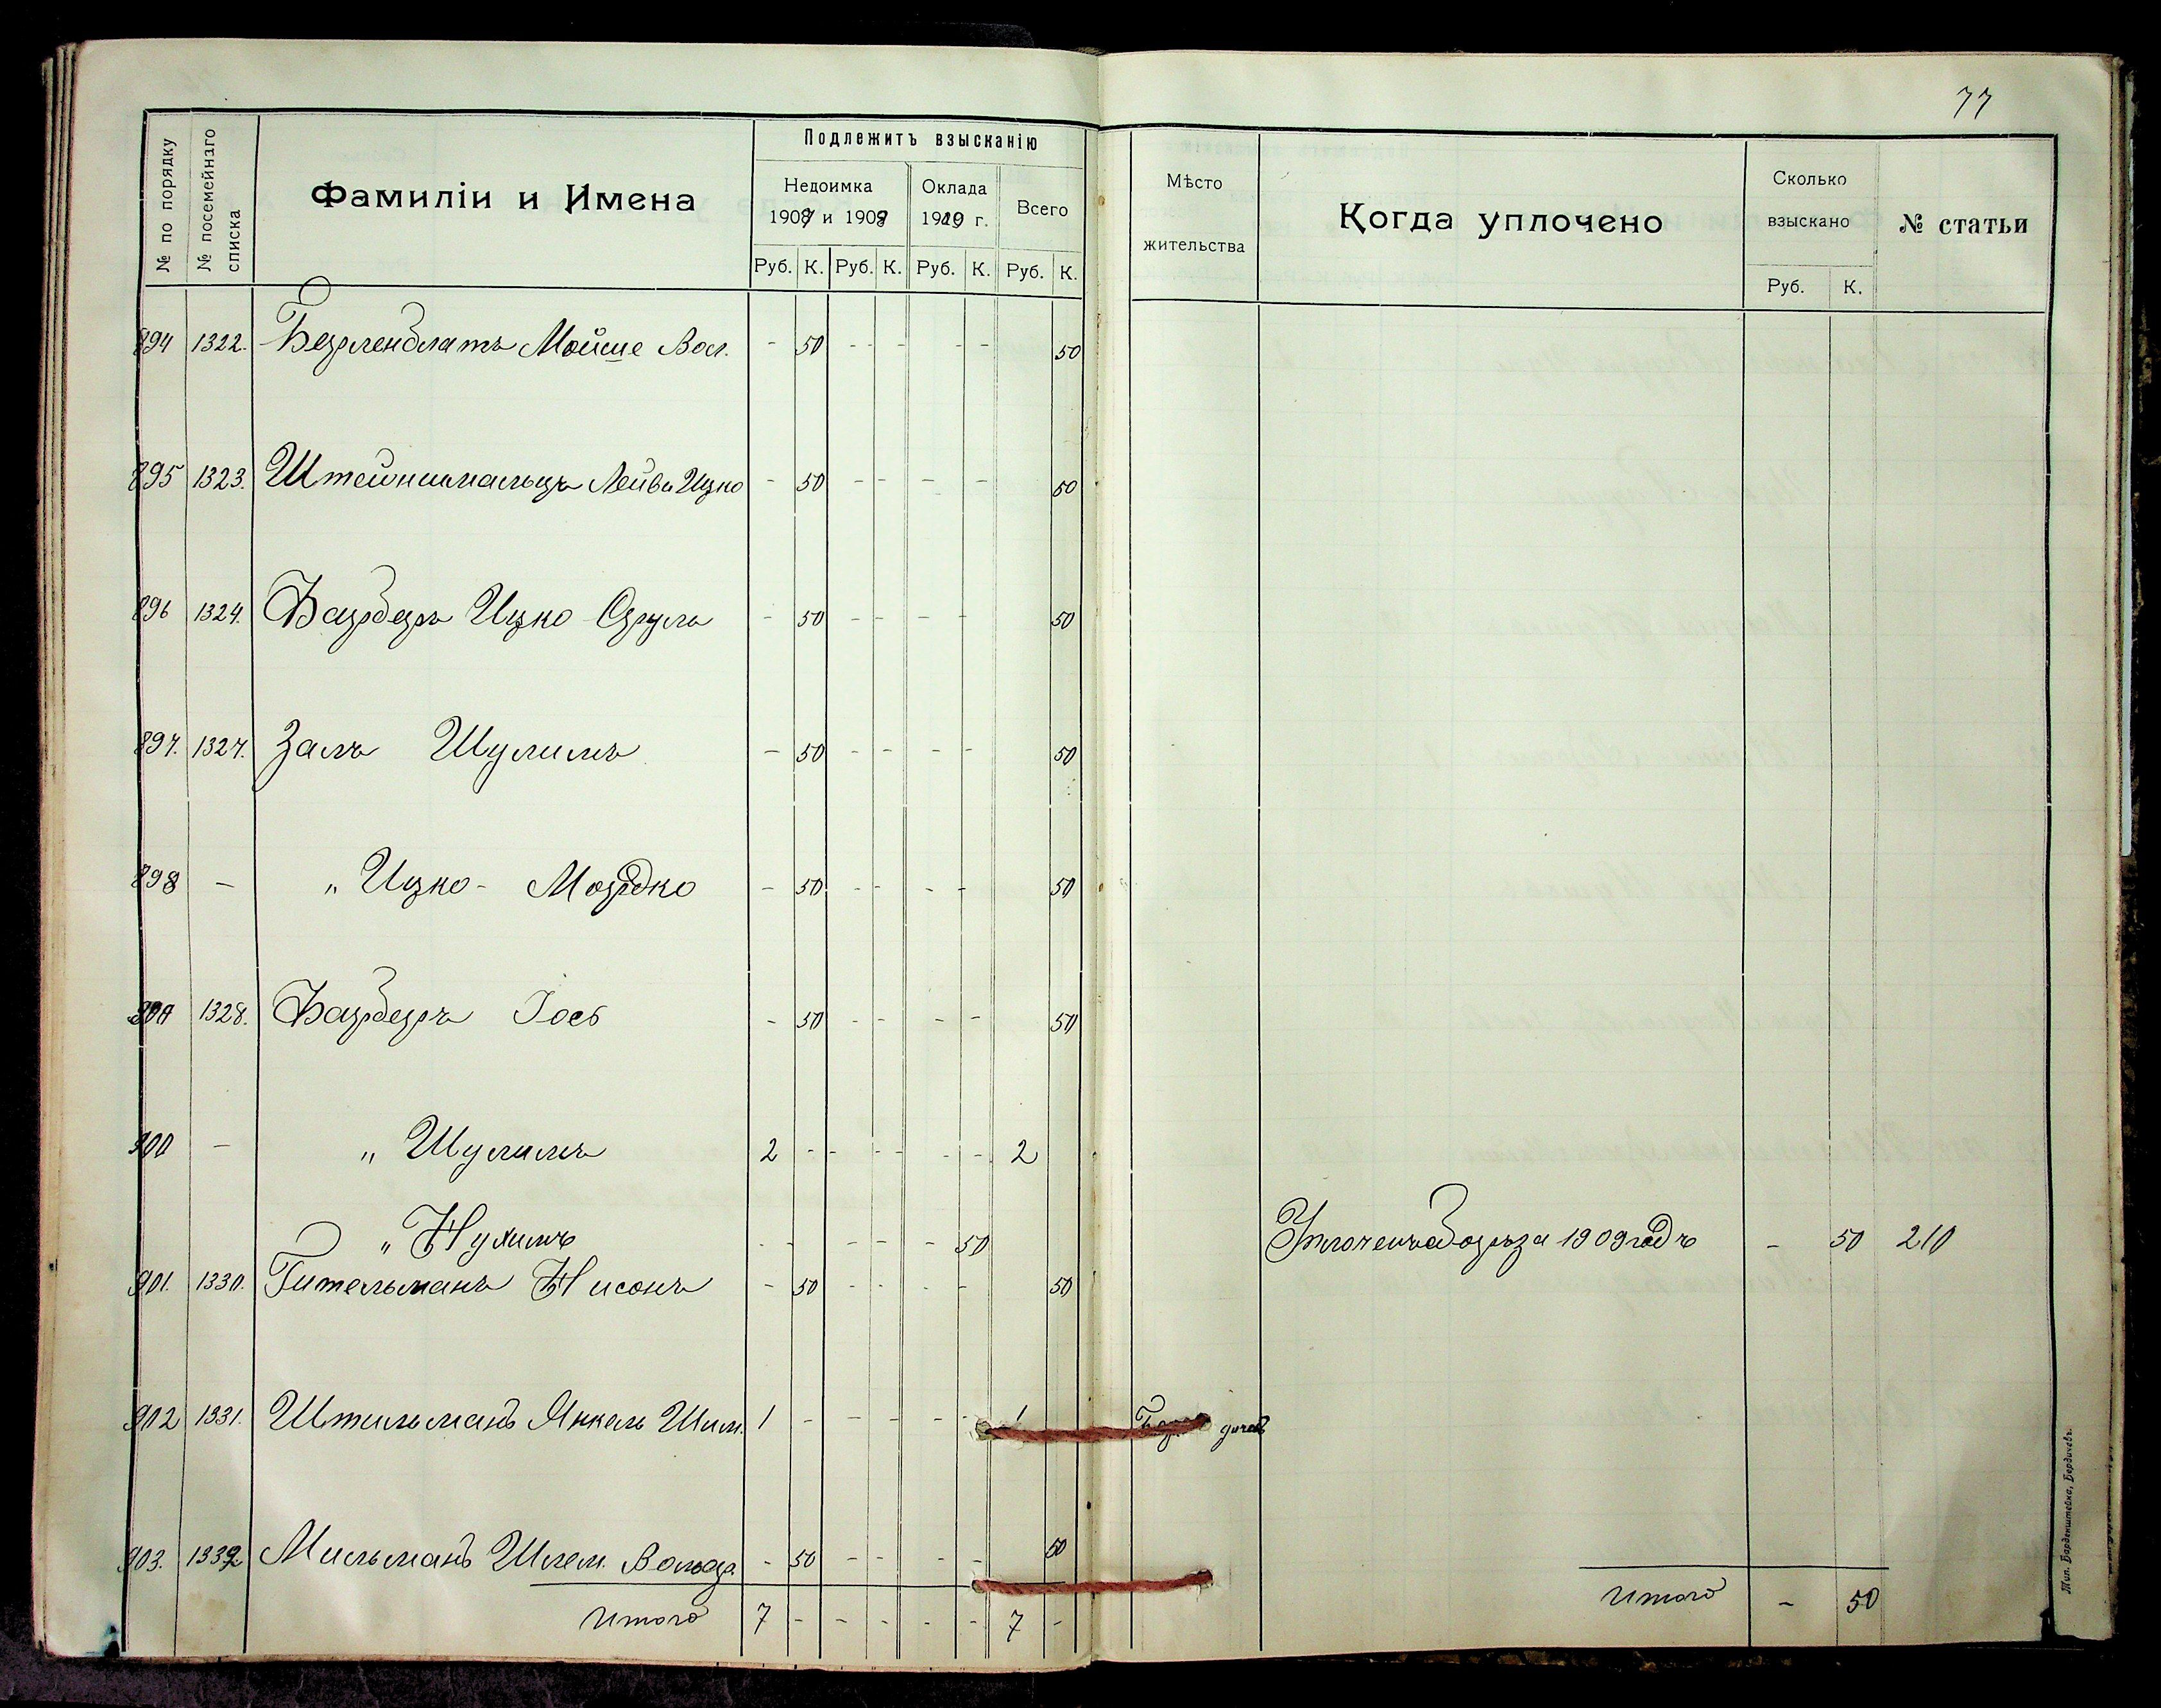 77
№ по порядку
№ посемейнаго списка
Фамиліи и Имена
Подлежитъ взысканію
Недоимка
1907 и 1908
Оклада
1909 г.
Всего
Руб. К. Руб. К. Руб. К. Руб. К.
Мѣсто
жительства
Когда уплочено
Сколько
взыскано
Руб. К.
№ статьи
894 1322. Берленблатъ Мойше Вол. - 50 - - - - - 50
895 1323. Штейншнальцъ Лейба Ицко - 50 - - - - 50
896 1324. Барберъ Ицко Сруль - 50 - - - - 50
897. 1327. Залъ Шулимъ - 50 - - - - 50
898 - „ Ицко - Мордко - 50 - - - - 50
1328. Барберъ Іось - 50 - - - - 50
900 - „ Шулимъ 2 - - - - - - 2
„ Нухимъ - - - - - 50 Уплоченъ сборъ за 1909 годъ - 50 210
901. 1330. Гительманъ Нисонъ - 50 - - - - 50
902 1331. Штильманъ Янкель Шим. 1 - - - - - 1 Бердичев
903. 1332 Мильманъ Шлем. Вольф. - 50 - - - - 50
Итого 7 - - - - - 7 -
Итого - 50
Тип. Барденштейна, Бердичевъ.